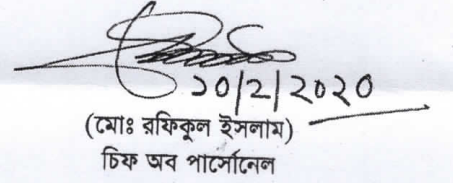 ১০/২/২০২০
(মোঃ রফিকুল ইসলাম)
চিফ অব পার্সোনেল